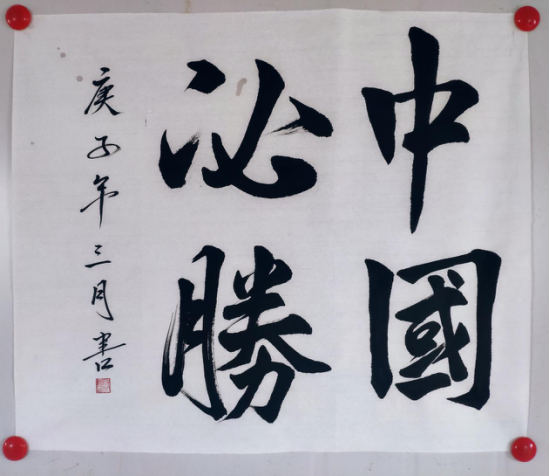 中國
必勝
庚子年三月書